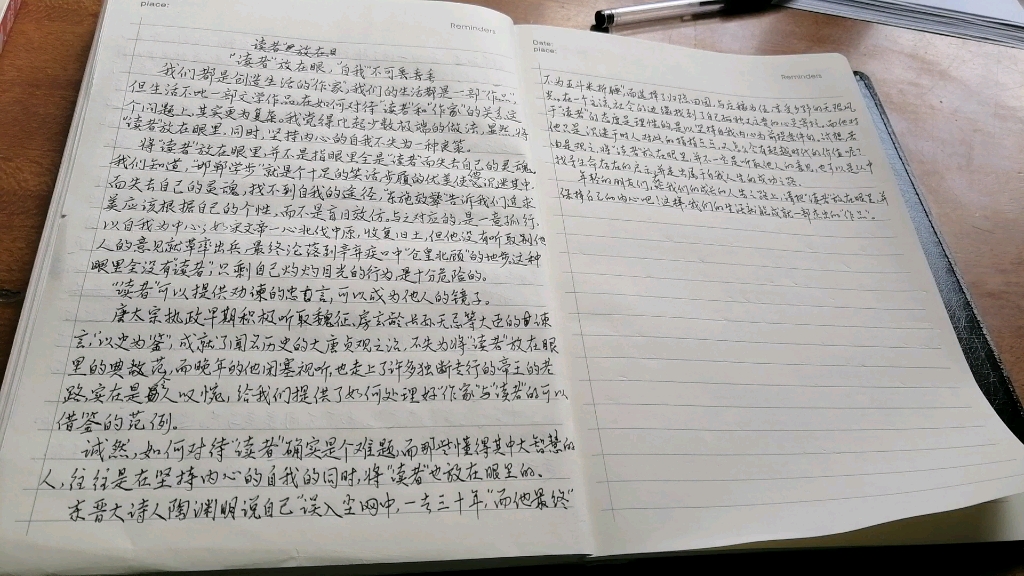 place:
Reminders
读者放在目
"读者"放在眼,"自我"不可丢弃
我们都是创造生活的"作家",我们的生活都是一部"作品"。
但生活不比一部文学作品,在如何对待"读者"和"作家"的关系这
个问题上,其实更为复杂。我觉得比起少数极端的做法,虽然将
"读者"放在眼里,同时,坚持内心的自我不失为一种良策。
将"读者"放在眼里并不是指眼里全是"读者"而失去自己的灵魂。
我们知道,"邯郸学步"就是个十足的笑话,步履的优美使您沉迷其中,
而失去自己的灵魂,找不到自我的途径,东施效颦告诉我们追求
美应该根据自己的个性,而不是盲目效仿,与之对应的,是一意孤行,
以自我为中心;如宋文帝一心北伐中原,收复旧土,但他没有听取别他
人的意见就草率出兵,最终沦落到辛弃疾口中"仓皇北顾"的地步这种
眼里全没有"读者",只剩自己灼灼目光的行为是十分危险的。
"读者"可以提供劝谏的忠言,可以成为他人的镜子。
唐太宗执政早期积极听取魏征,房玄龄长孙无忌等大臣的谏
言,"以史为鉴",成就了闻名历史的大唐贞观之治,不失为将"读者"放在眼
里的典范,而晚年的他闭塞视听,也走上了许多独断专行的帝王的老
路,实在是令人叹慨,给我们提供了如何处理好"作家"与"读者"的可以
借鉴的范例。
诚然,如何对待"读者"确实是个难题,而那些懂得其中大智慧的
人,往往是在坚持内心的自我的同时,将"读者"也放在眼里的。
东晋大诗人陶渊明说自己"误入尘网中,一去三十年,"而他最终"
Date:
place:
Reminders
不为五斗米折腰",而选择了归隐田园,与
在一个主流社会的边缘找到了自己
于"读者"的态度是理性的是以坚持自我内心为前提条件的。
他只是沉迷于时人
由是观之,将"读者"放在眼里,并不一定是听取他人的意见,也可以是从中
找寻生命存在的意义,
年轻的朋友们,在我们的成长的人生之路上,请把"读者"放在眼里,并
保持自己的内心吧!这样,我们的生活就能成就一部杰出的"作品"。